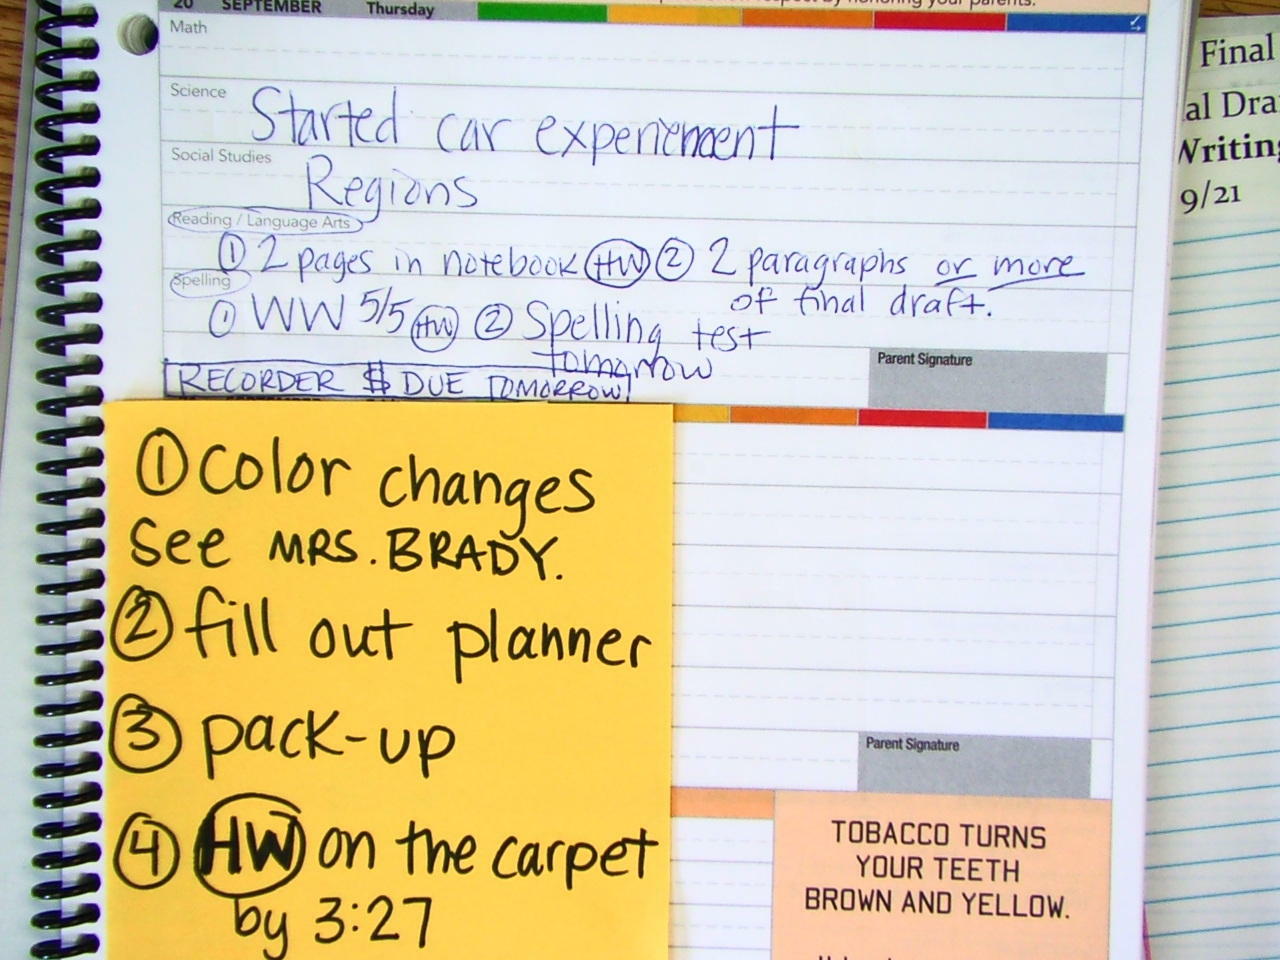 20 SEPTEMBER Thursday
by honoring your parents.
Math
Science
Started car experiement
Social Studies
Regions
Reading / Language Arts
① 2 pages in notebook HW ② 2 paragraphs or more
of final draft.
Spelling
① WW 5/5 HW ② Spelling test
tomorrow
Parent Signature
RECORDER $ DUE TOMORROW
① color changes
see MRS. BRADY.
② fill out planner
③ pack-up
④ HW on the carpet
by 3:27
Parent Signature
TOBACCO TURNS
YOUR TEETH
BROWN AND YELLOW.
Final
al Dra
Writing
9/21